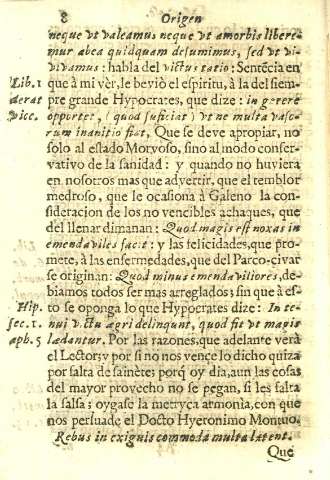 8 Origen
neque vt valeamus neque vt amorbis libere-
mur abea quidquam desumimus, sed vt vi-
vivamus: habla del victus ratio: Sentēcia en
Lib. 1 que à mi vèr, le beviò el espiritu, à la del siem-
derat pre grande Hypocrates, que dize: in genere
vicc. opportet, (quod suficiat) vt ne multa vaso-
rum inanitio fiat, Que se deve apropiar, no
solo al estado Morvoso, sino al modo conser-
vativo de la sanidad: y quando no huviera
en nosotros mas que advertir, que el temblor
medroso, que le ocasiona à Galeno la con-
sideracion de los no vencibles achaques, que
del llenar dimanan: Quod magis est noxas in
emendaviles facit: y las felicidades, que pro-
mete, à las enfermedades, que del Parco-civar
se originan: Quod minus emendaviliores, de-
biamos todos ser mas arreglados; sin que à es-
Hip. to se oponga lo que Hypocrates dize: In te-
sec. 1. nui victu ægri delinqunt, quod fit vt magis
aph. 5 lædantur. Por las razones, que adelante verà
el Lector; y por si no nos vence lo dicho quiza
por falta de sainète; porq̃ oy dia, aun las cosas
del mayor provecho no se pegan, si les falta
la salsa; oygase la metryca armonìa, con que
nos persuade el Docto Hyeronimo Montuo.
Rebus in exiguis commoda multa latent.
Que